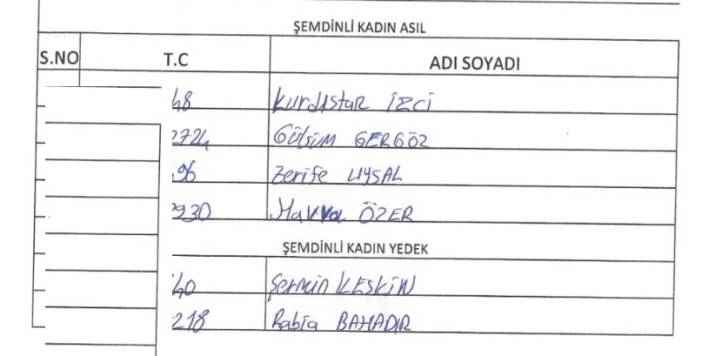 ŞEMDİNLİ KADIN ASIL
S.NO T.C ADI SOYADI
48 Kurdıstan İZCİ
2724 Gülsüm GERGÖZ
96 Zerife UYSAL
930 Havva ÖZER
ŞEMDİNLİ KADIN YEDEK
40 Şermin KESKİN
218 Rabia BAHADIR